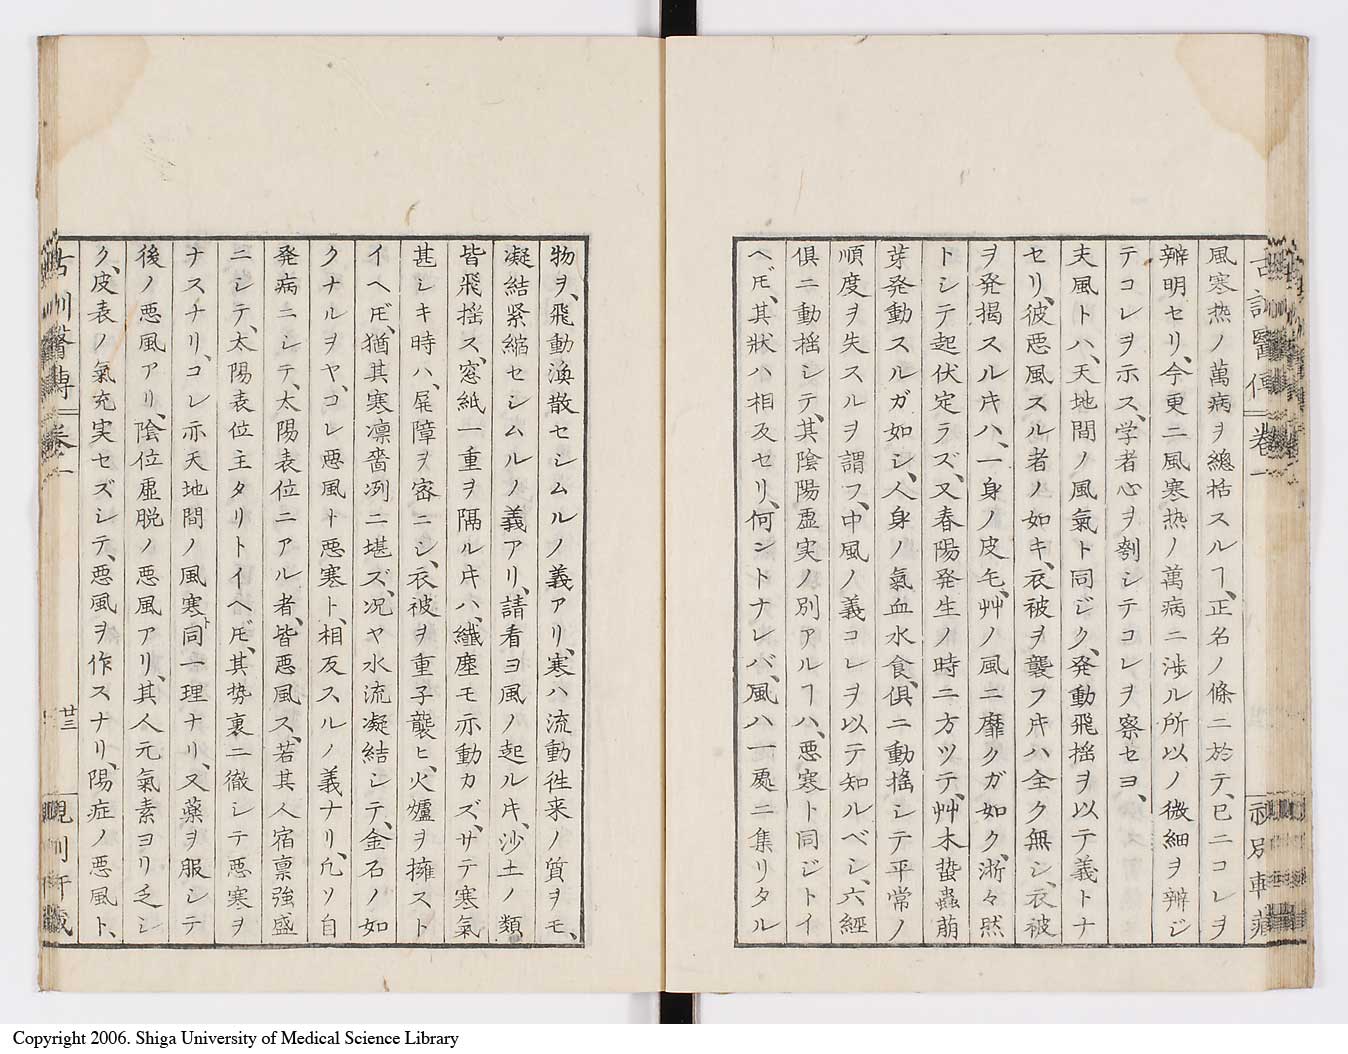 風寒热ノ萬病ヲ總括スルヿ、正名ノ條ニ於テ、已ニコレヲ
辨明セリ、今更ニ風寒热ノ萬病ニ渉ル所以ノ微細ヲ辨ジ
テコレヲ示ス、学者心ヲ刳シテコレヲ察セヨ、
夫風トハ、天地間ノ風氣ト同ジク、発動飛揺ヲ以テ義トナ
セリ、彼悪風スル者ノ如キ、衣被ヲ襲フ𪜈ハ全ク無シ、衣被
ヲ発揚スル𪜈ハ、一身ノ皮毛、艸ノ風ニ靡クガ如ク、淅々然
トシテ起伏定ラズ、又春陽発生ノ時ニ方ツテ、艸木蟄蟲萠
芽発動スルガ如シ、人身ノ氣血水食、俱ニ動搖シテ平常ノ
順度ヲ失スルヲ謂フ、中風ノ義コレヲ以テ知ルベシ、六經
俱ニ動揺シテ、其陰陽虚実ノ別アルヿハ、悪寒ト同ジトイ
ヘ𪜈、其狀ハ相反セリ、何ントナレバ、風ハ一處ニ集リタル
物ヲ、飛動渙散セシムルノ義アリ、寒ハ流動徃来ノ質ヲモ、
凝結紧縮セシムルノ義アリ、請看ヨ風ノ起ル𪜈、沙土ノ類
皆飛揺ス、窓紙一重ヲ隔ル𪜈ハ、纎塵モ亦動カズ、サテ寒氣
甚シキ時ハ、屛障ヲ密ニシ、衣被ヲ重子襲ヒ、火爐ヲ擁スト
イヘ𪜈、猶其寒凛嗇冽ニ堪ズ、况ヤ水流凝結シテ、金石ノ如
クナルヲヤ、コレ悪風ト悪寒ト、相反スルノ義ナリ、凡ソ自
発病ニシテ、太陽表位ニアル者、皆悪風ス、若其人宿禀強盛
ニシテ、太陽表位主タリトイヘ𪜈、其势裏ニ徹シテ悪寒ヲ
ナスナリ、コレ亦天地間ノ風寒ト同一理ナリ、又薬ヲ服シテ
後ノ悪風アリ、陰位虚脱ノ悪風アリ、其人元氣素ヨリ乏シ
ク、皮表ノ氣充実セズシテ、悪風ヲ作スナリ、陽症ノ悪風ト、
古訓醫傳 卷一
廿三
Copyright 2006. Shiga University of Medical Science Library